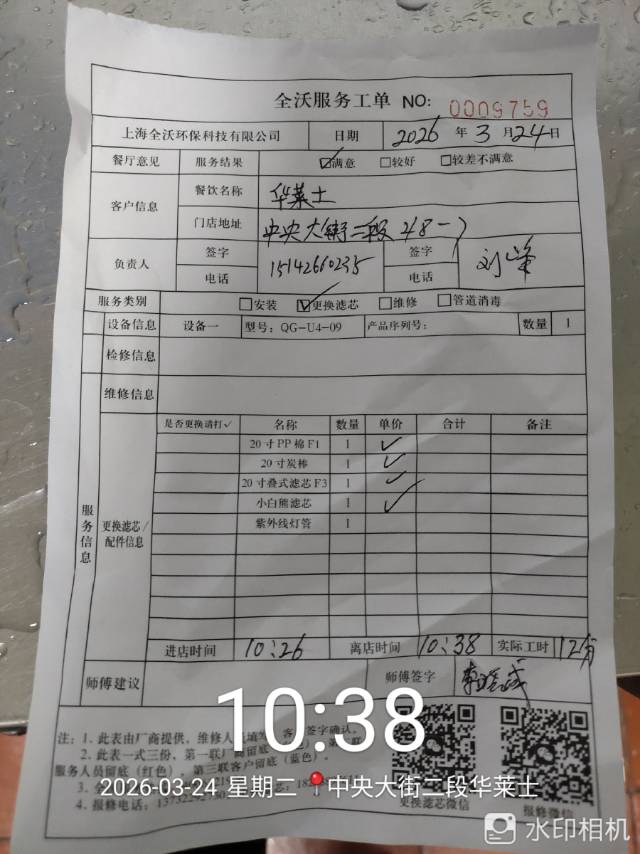 全沃服务工单 NO: 0009759
上海全沃环保科技有限公司 日期 2026 年 3 月 24 日
餐厅意见 服务结果 ☑满意 □较好 □较差不满意
客户信息 餐饮名称 华莱士
门店地址 中央大街二段
负责人 签字 签字 刘峰
电话 15142660235 电话
服务类别 □安装 ☑更换滤芯 □维修 □管道消毒
设备信息 设备一 型号: QG-U4-09 产品序列号: 数量 1
检修信息
维修信息
服务信息
更换滤芯/配件信息
是否更换请打✓ 名称 数量 单价 合计 备注
20寸PP棉F1 1 ✓
20寸炭棒 1 ✓
20寸叠式滤芯F3 1 ✓
小白熊滤芯 1 ✓
紫外线灯管 1
进店时间 10:26 离店时间 10:38 实际工时 12分
师傅建议 师傅签字
10:38
注: 1. 此表由厂商提供、维修人 签字确认。
2. 此表一式三份、第一联厂
服务人员留底 (红色)。第三联客户留底 (蓝色)。
2026-03-24 星期二 中央大街二段华莱士
4. 报修电话:
更换滤芯微信 报修微信
水印相机